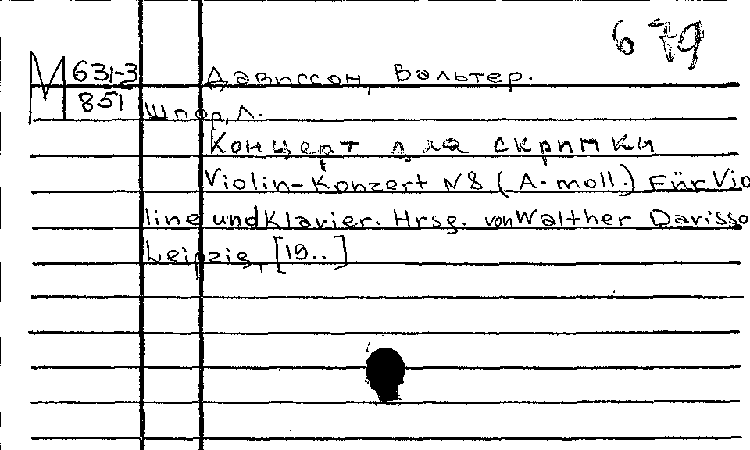 679
М 631-3
851
Дависсон, Вальтер.
Шпор, Л.
Концерт для скрипки
Violin-Konzert N8 (A-moll.) Für Vio
line und Klavier. Hrsg. von Walther Davisso
Leipzig, [19..]